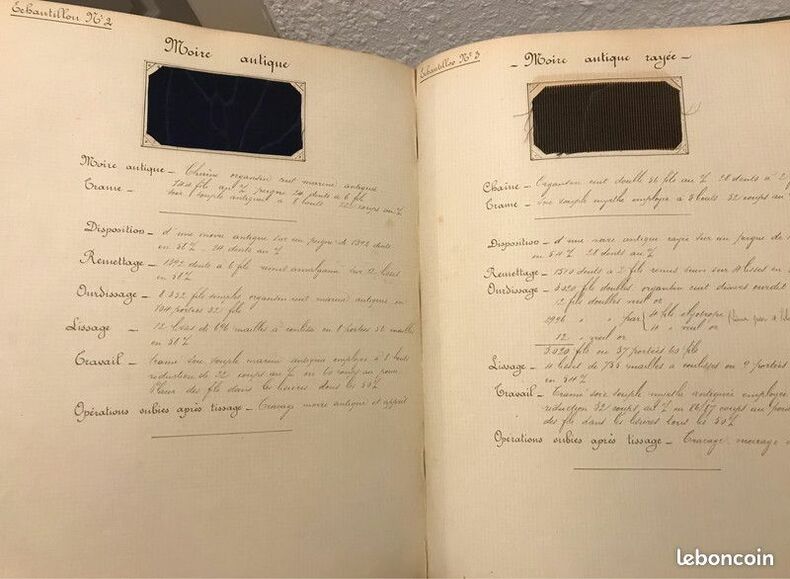 Echantillon N° 2
Moire antique
Moire antique - Chaîne organsin cuit marine antique
Trame - 144 fils au % peigne 24 dents à 6 fils
soie souple antique à 8 bouts 22 coups au %
Disposition - d'une moire antique sur un peigne de 1392 dents
en 58 % - 24 dents au %
Remettage - 1392 dents à 6 fils remis amalgamé sur 12 lisses
en 58 %
Ourdissage - 8352 fils simples organsin cuit marine antique en
104 portées 32 fils
Lissage - 12 lisses de 696 mailles à coulisse en 8 portées 56 mailles
en 58 %
Travail - trame soie souple marine antique employée à 8 bouts
réduction de 22 coups au % ou 60 coups au pouce
dans les lisières dans les
Opérations subies après tissage - Tracage moire antique et apprêt
Echantillon N° 3
- Moire antique rayée -
Chaîne - Organsin cuit double 56 fils au % 28 dents à 2
Trame - soie souple myrthe employée à 8 bouts 32 coups au
Disposition - d'une moire antique rayée sur un peigne de
en 54 % 28 dents au %
Remettage - 1510 dents à 2 fils remis suivi sur 4 lisses en
Ourdissage - 3020 fils doubles organsin cuit divers ourdit
12 fils doubles vieil or
1996 " " par 4 fils
4 " vieil or
12 " vieil or
3.020 fils ou 37 portées 60 fils
Lissage - 4 lisses de 755 mailles à coulisses ou 9 portées
en 54 %
Travail - Trame soie souple myrthe antique employée
réduction 32 coups au % ou 86/87 coups au pouce
des fils dans les lisières
Opérations subies après tissage - Tracage, moirage
leboncoin